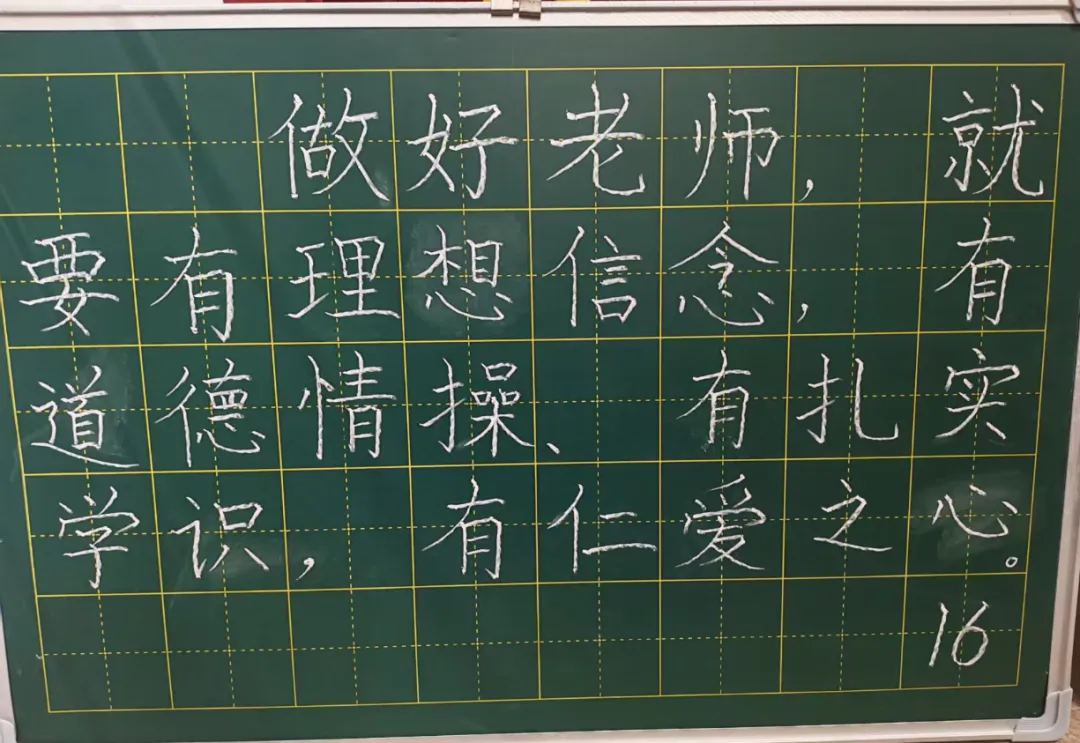 做好老师，就
要有理想信念，有
道德情操、有扎实
学识，有仁爱之心。
16